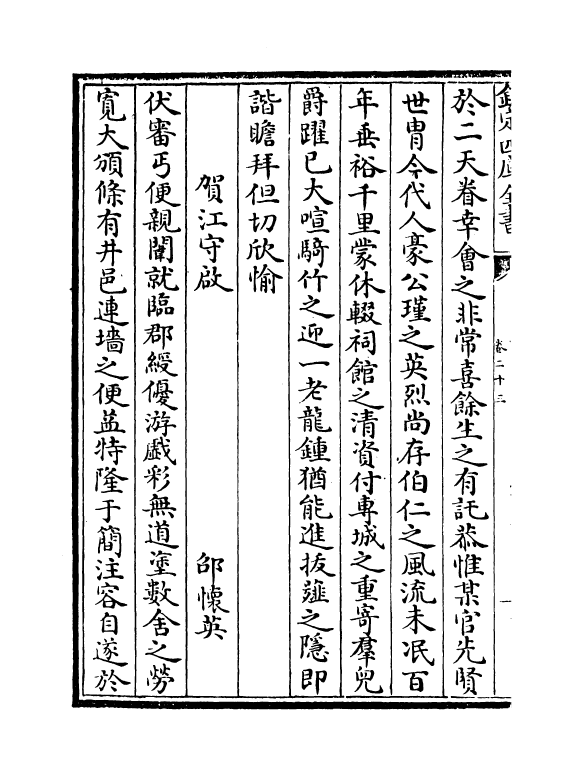 欽定四庫全書
卷二十三
於二天眷幸㑹之非常喜餘生之有託恭惟某官先賢
世胄今代人豪公瑾之英烈尚存伯仁之風流未冺百
年垂裕千里蒙休輟祠館之清資付專城之重寄羣兒
爵躍已大喧騎竹之迎一老龍鍾猶能進拔薤之隱即
諧瞻拜但切欣愉
賀江守啟
邵懷英
伏審丐便親闈就臨郡綬優游戯彩無道塗數舍之勞
寛大頒條有井邑連墻之便葢特隆于簡注容自遂於